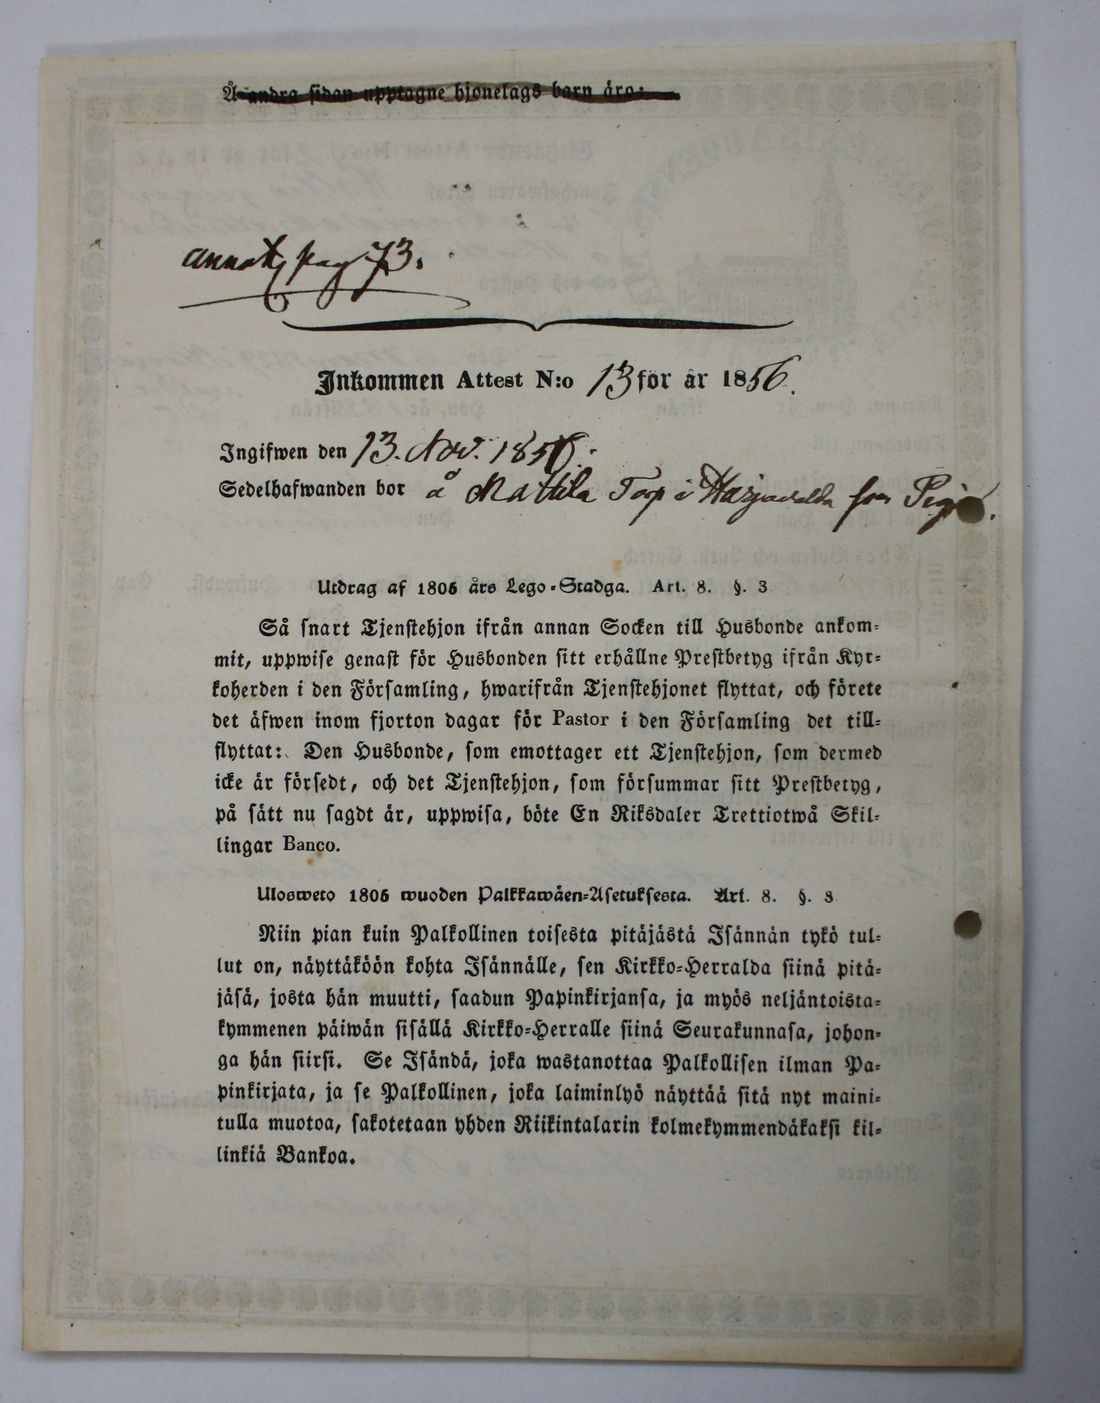 Å andra sidan upptagne hjonelags barn äro:
annot, pag 73.
Inkommen Attest N:o 13 för år 1856.
Ingifwen den 13. Nov. 1856.
Sedelhafwanden bor å Mattila Torp i Harjavalda som Piga.
Utdrag af 1805 års Lego-Stadga. Art. 8. §. 3
Så snart Tjenstehjon ifrån annan Socken till Husbonde ankom-
mit, uppwise genast för Husbonden sitt erhållne Prestbetyg ifrån Kyr-
koherden i den Församling, hwarifrån Tjenstehjonet flyttat, och förete
det äfwen inom fjorton dagar för Pastor i den Församling det till-
flyttat: Den Husbonde, som emottager ett Tjenstehjon, som dermed
icke är försedt, och det Tjenstehjon, som försummar sitt Prestbetyg,
på sätt nu sagdt är, uppwisa, böte En Riksdaler Trettiotwå Skil-
lingar Banco.
Ulosweto 1805 wuoden Palkkawäen-Asetuksesta. Art. 8. §. 3
Niin pian kuin Palkollinen toisesta pitäjästä Isännän tykö tul-
lut on, näyttäköön kohta Isännälle, sen Kirkko-Herralda siinä pitä-
jäsä, josta hän muutti, saadun Papinkirjansa, ja myös neljäntoista-
kymmenen päiwän sisällä Kirkko-Herralle siinä Seurakunnasa, johon-
ga hän siirsi. Se Isändä, joka wastanottaa Palkollisen ilman Pa-
pinkirjata, ja se Palkollinen, joka laiminlyö näyttää sitä nyt maini-
tulla muotoa, sakotetaan yhden Riikintalarin kolmekymmendäkaksi kil-
linkiä Bankoa.